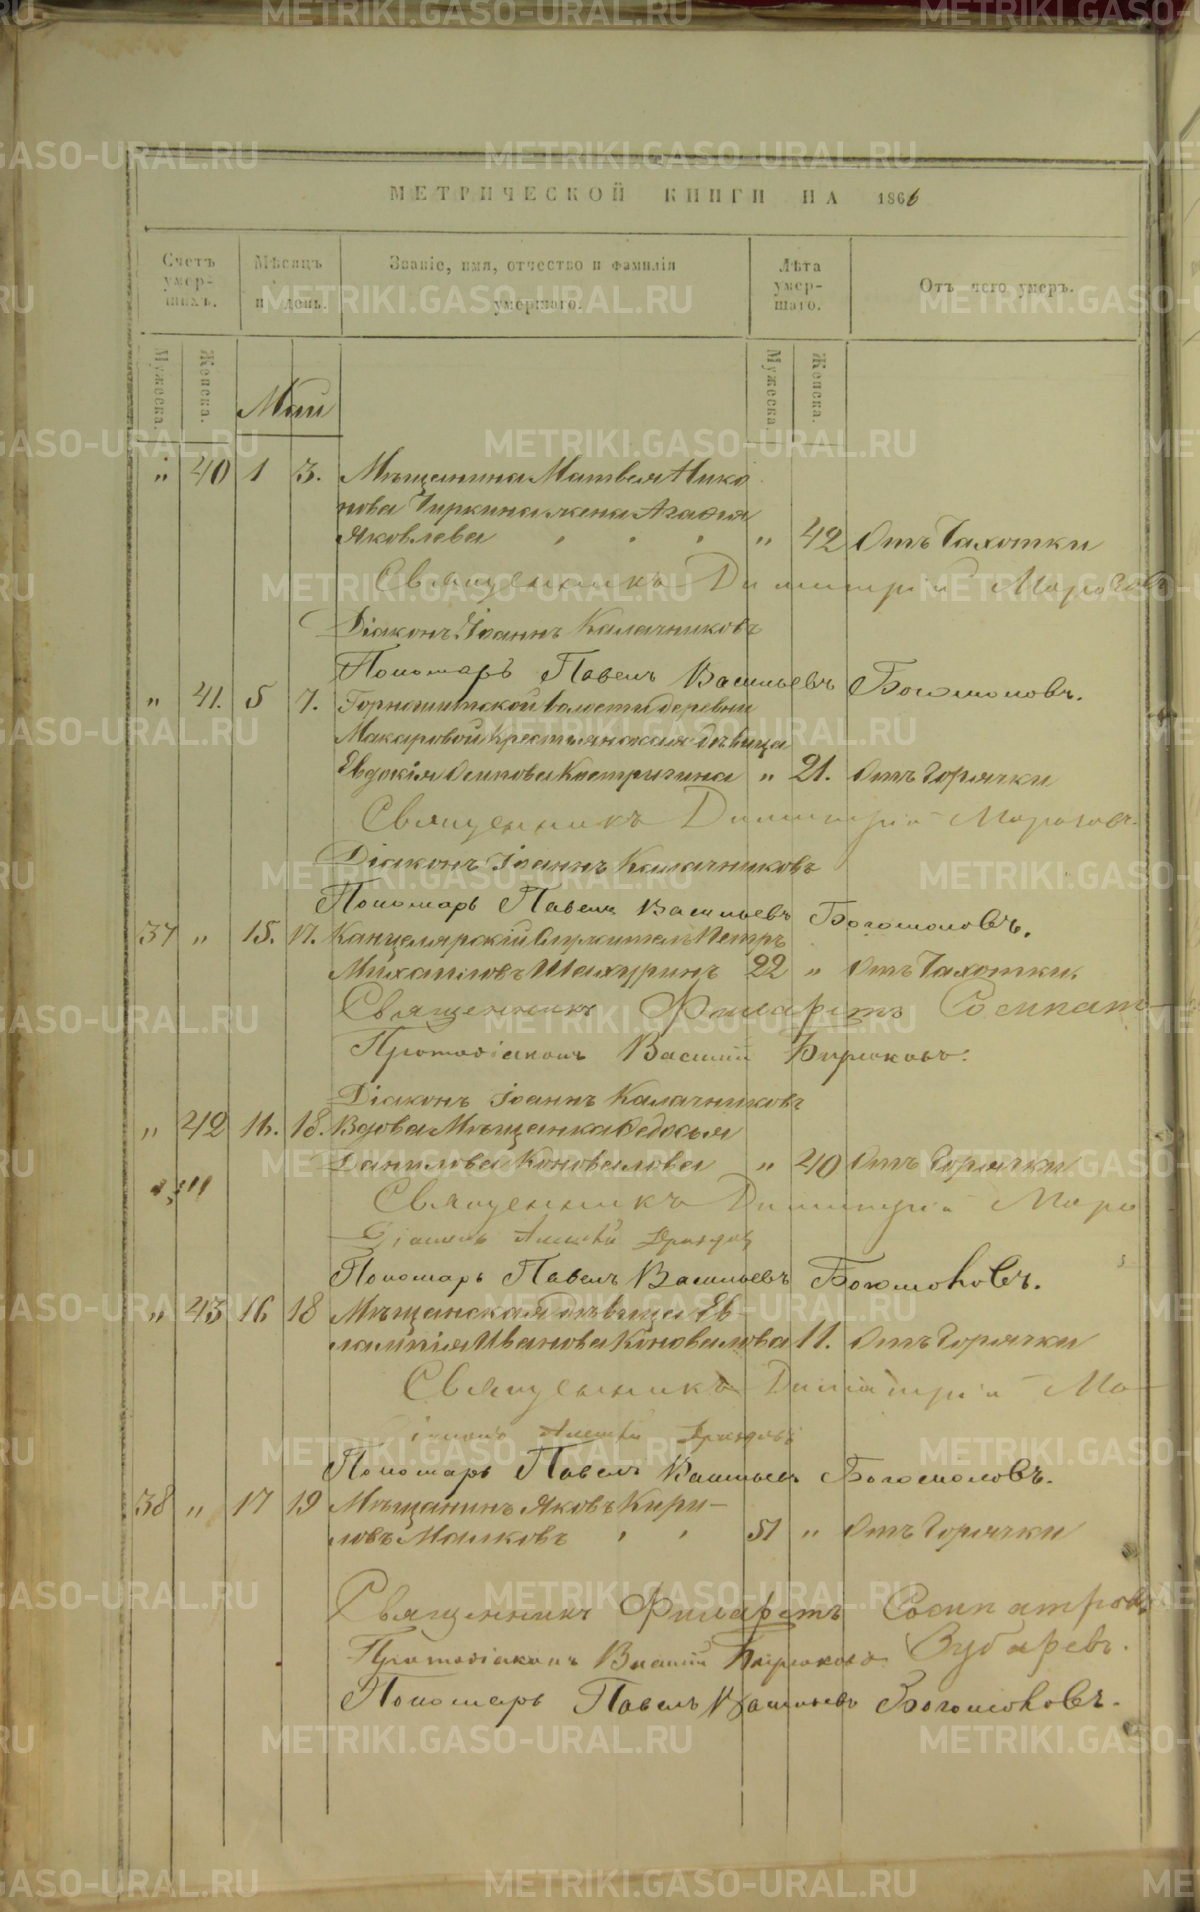 МЕТРИЧЕСКОЙ КНИГИ НА 1866
Счетъ умер-шихъ.
Мѣсяцъ и день.
Званіе, имя, отчество и фамилія умершаго.
Лѣта умер-шаго.
Отъ чего умеръ.
Мужеска. Женска.
Мужеска Женска.
Май
„ 40 1 3. Мѣщанина Матвея Нико
нова Чиркина жена Агафия
Яковлева „ 42 Отъ Чахотки
Священникъ Димитрій
Діаконъ Іоаннъ Калачниковъ
Пономарь Павелъ Васильевъ Богомоловъ.
„ 41. 5 7. Горнощитской волости деревни
Макаровой Крестьянская дѣвица
Евдокія Осипова Костригина „ 21. Отъ Горячки
Священникъ Димитрій
Діаконъ Іоаннъ Калачниковъ
Пономарь Павелъ Васильевъ Богомоловъ.
37 „ 15. 17. Канцелярскій Служитель Петръ
Михаиловъ Шахуринъ 22 „ Отъ Чахотки.
Священникъ Филаретъ Сосипат
Протодіаконъ Василій Бирюковъ.
Діаконъ Іоаннъ Калачниковъ
„ 42 16. 18. Вдова Мѣщанка Федосья
Данилова Коновалова „ 40 Отъ Горячки
Священникъ Димитрій
Діаконъ Алексѣй Дроздов
Пономарь Павелъ Васильевъ Богомоловъ.
„ 43 16 18 Мѣщанская дѣвица Ев
лампія Иванова Коновалова 11. Отъ Горячки
Священникъ Димитрій Мо
іаконъ Алексѣй Дроздовъ
Пономарь Павелъ Васильевъ Богомоловъ.
38 „ 17 19 Мѣщанинъ Яковъ Кири-
ловъ Малковъ 51 „ Отъ Горячки
Священникъ Филаретъ Сосипатровъ
Зубаревъ.
Протодіаконъ Василій Бирюковъ
Пономарь Павелъ Васильевъ Богомоловъ.
METRIKI.GASO-URAL.RU